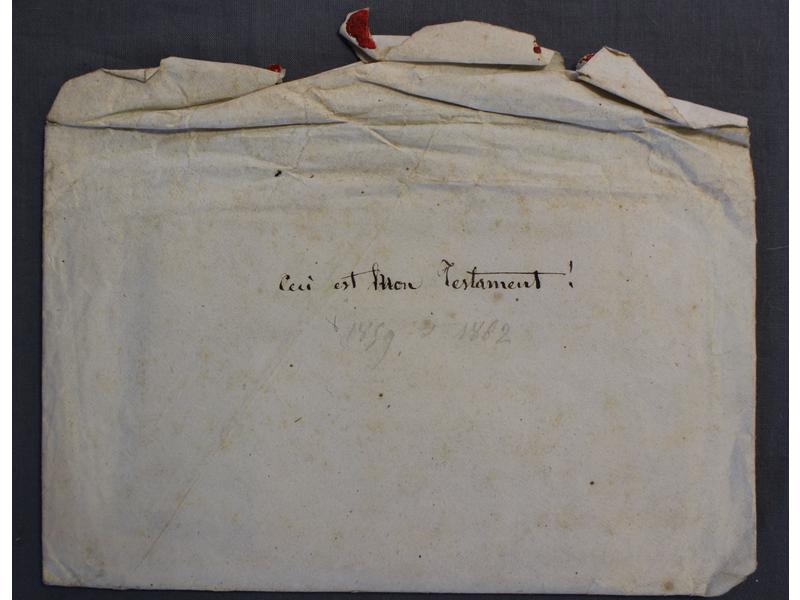 Ceci est Mon Testament !
1859 à 1882